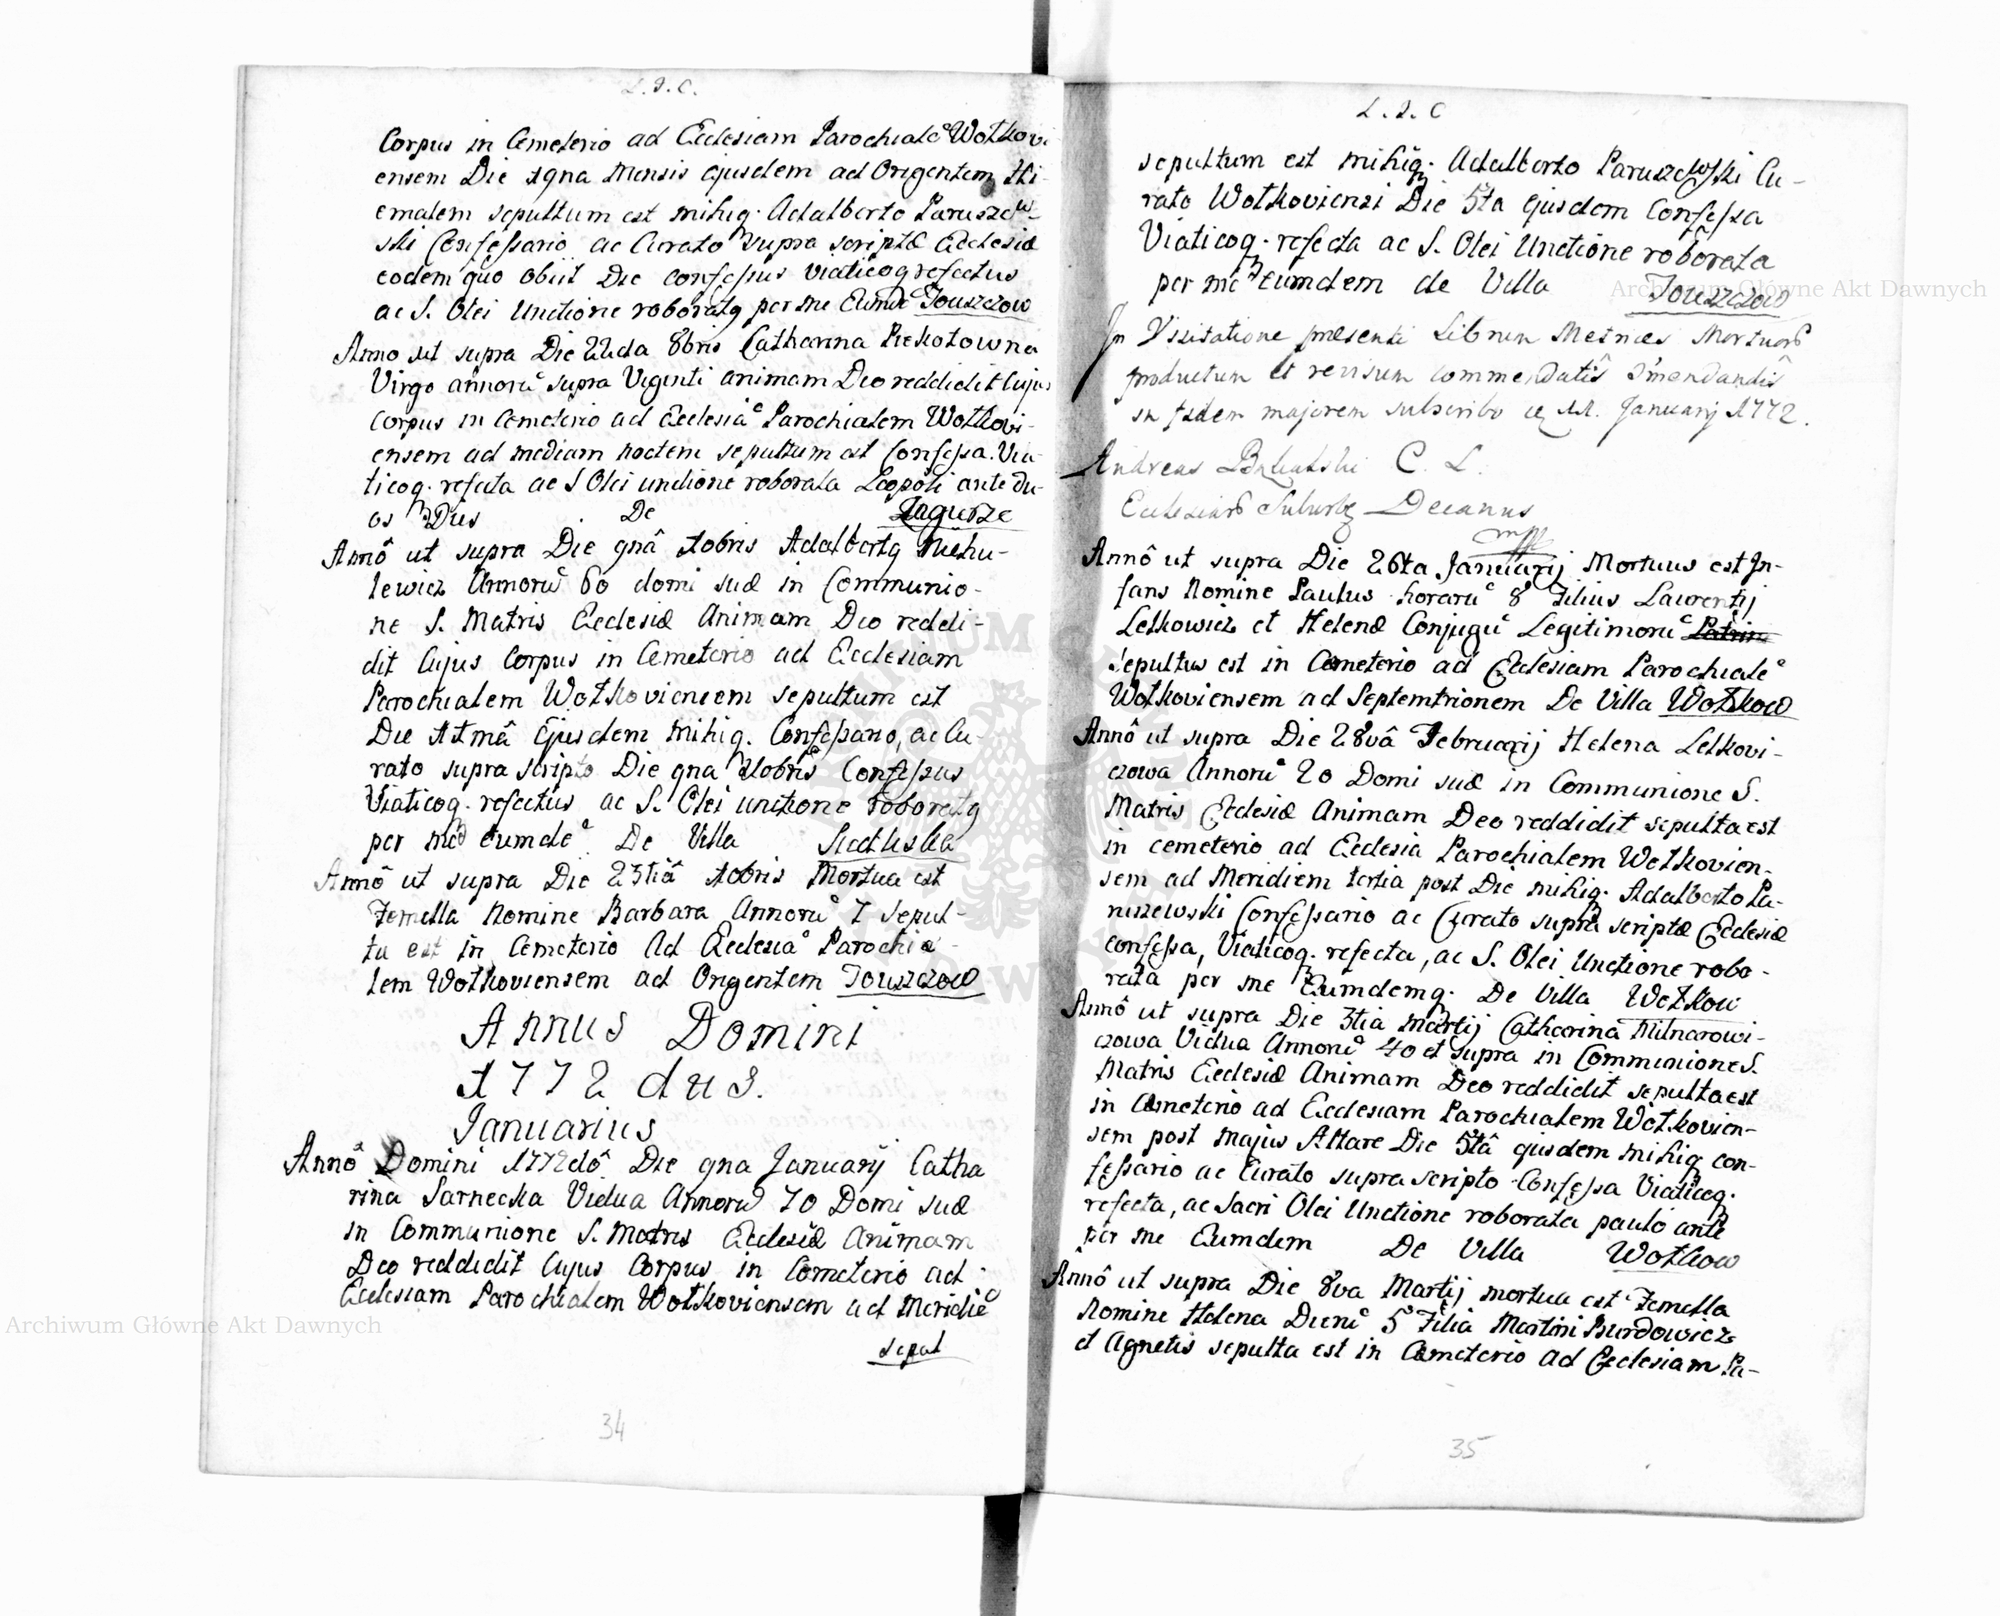 L. J. C.
Corpus in Cemeterio ad Ecclesiam Parochialẽ Wołkovi
ensem Die 19na Mensis ejusdem ad Orientem Hi-
emalem sepultum est mihiq. Adalberto Paruszew-
ski Confessario ac Curato supra scriptæ Ecclesiæ
eodem quo obiit Die confessus viaticoq refectus
ac S. Olei Unctione roboratq per me Eundẽ Touszczow
Anno ut supra Die 22da 8bris Catharina Piekotowna
Virgo annorũ supra Viginti animam Deo reddidit Cujus
corpus in Cemeterio ad Ecclesiã Parochialem Wołkovi-
ensem ad mediam noctem sepultum est Confessa Via-
ticoq. refecta ac S Olei unctione roborata Leopoli ante Du-
os Dies De Zagurze
Annô ut supra Die 9nâ Xobris Adalbertq Michu-
lewicz Annorũ 60 domi suæ in Communio-
ne S. Matris Ecclesiæ Animam Deo reddi-
dit Cujus Corpus in Cemeterio ad Ecclesiam
Parochialem Wołkoviensem sepultum est
Die 11mâ Ejusdem mihiq. Confessario, ac Cu-
rato supra scripto Die 9na Xobris Confessus
Viaticoq. refectus ac S. Olei unctione roboratq
per me eumdẽ De Villa
Annô ut supra Die 23tiâ Xobris Mortua est
Femella Nomine Barbara Annorũ 7 Sepul-
ta est in Cemeterio ad Ecclesiã Parochia-
lem Wołkoviensem ad Orientem Touszczow
Annus Domini
1772 dus.
Januarius
Annô Domini 1772dô Die 9na Januarij Catha
rina Sarnecka Vidua Annorũ 70 Domi suæ
in Communione S. Matris Ecclesiæ Animam
Deo reddidit Cujus Corpus in Cemeterio ad
Ecclesiam Parochialem Wołkoviensem ad Meridiẽ
sepul
34
L. J. C
sepultum est mihiq. Adalberto Paruszewski Cu-
rato Wołkoviensi Die 5ta ejusdem Confessa
Viaticoq. refecta ac S. Olei Unctione roborata
per me eumdem de Villa Touszczow
In Visitatione præsenti Librum Metrices Mortuorũ
productum et revisum commendatis Emendandis
in fidem majorem subscribo 11. Januarij 1772.
Andreas C. L.
Ecclesiarũ Suburbq Decanus
mpp
Annô ut supra Die 26ta Januarij Mortuus est In-
fans Nomine Paulus horarũ 8 Filius Laurentij
Letkowicz et Helenæ Conjugũ Legitimorũ
Sepultus est in Cemeterio ad Ecclesiam Parochialẽ
Wołkoviensem ad Septemtrionem De Villa Wołkow
Annô ut supra Die 28vâ Februarij Helena Letkovi-
czowa Annorũ 20 Domi suæ in Communione S.
Matris Ecclesiæ Animam Deo reddidit sepulta est
in cemeterio ad Ecclesia Parochialem Wołkovien-
sem ad Meridiem tertia post Die mihiq. Adalberto Pa-
ruszewski Confessario ac Curato supra scriptæ Ecclesiæ
confessa, Viaticoq. refecta, ac S. Olei Unctione robo-
rata per me Eumdemq. De Villa Wołkow
Annô ut supra Die 3tia Martij Catharina Milnarowi-
czowa Vidua Annorũ 40 et supra in Communione S.
Matris Ecclesiæ Animam Deo reddidit sepulta est
in Cemeterio ad Ecclesiam Parochialem Wołkovien-
sem post majus Altare Die 5tâ ejusdem mihiq con-
fessario ac Curato supra scripto Confessa Viaticoq.
refecta, ac Sacri Olei Unctione roborata paulo ante
per me Eumdem De Villa Wołkow
Annô ut supra Die 8va Martij mortua est Femella
Nomine Helena Dierũ 5 Filia Martini Burdowicz
et Agnetis sepulta est in Cemeterio ad Ecclesiam Pa-
35
Archiwum Główne Akt Dawnych
Archiwum Główne Akt Dawnych
ARCHIWUM GŁÓWNE AKT DAWNYCH